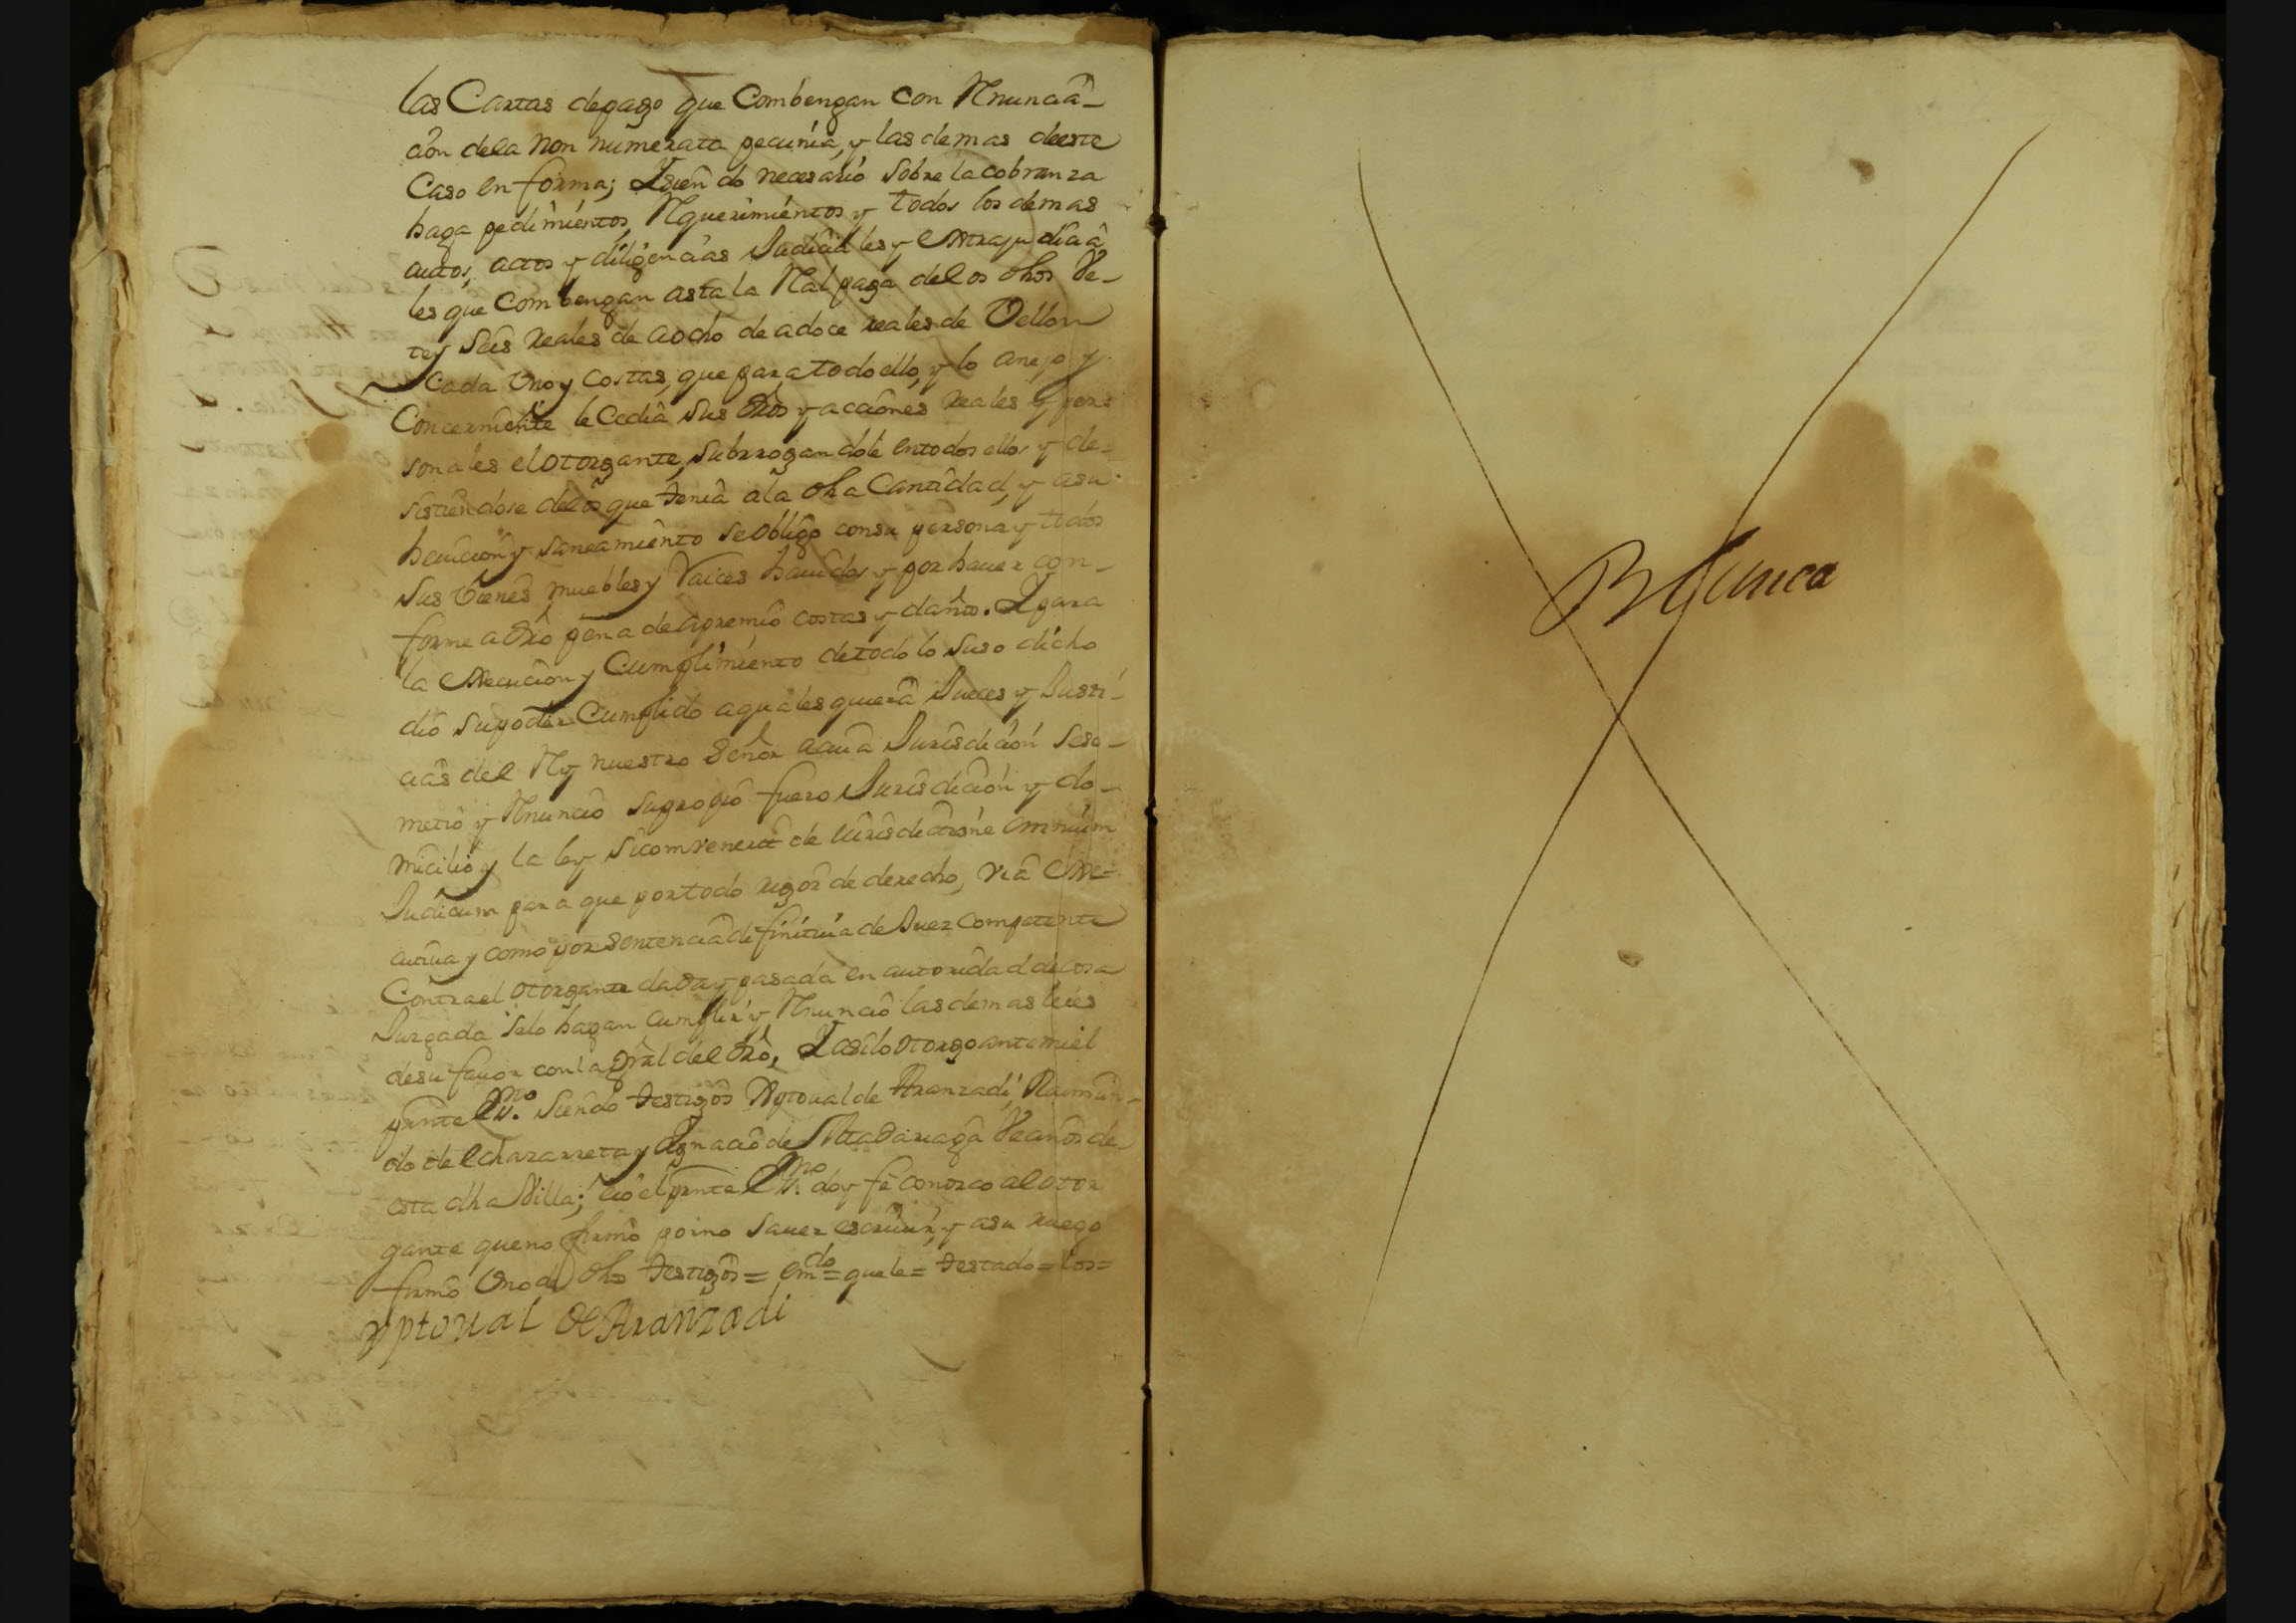 las Cartas de pago que Combengan con Renuncia-
cion de la non numerata pecunia, y las demas de este
Caso en forma; Y siendo necesario sobre la cobranza
haga pedimientos, Requerimientos y todos los demas
autos, actos y diligencias Judiciales y Extrajudicia
les que Combengan asta la Real paga de los dhos Ve-
tey seis reales de a ocho de a doce reales de Vellon
Cada Uno y costas, que para todo ello, y lo anejo y
Concerniente le Cedia sus dros y acciones reales y per=
sonales el otorgante, subrrogandole en todos ellos y de=
sistiendose de los que tenia a la dha Cantidad, y a su
heviccion y saneamiento se obligo con su persona y todos
sus Vienes muebles y Raices havidos y por haver con-
forme a dro pena de apremio costas y daños. Y para
la Execucion y Cumplimiento de todo lo suso dicho
dio su poder Cumplido a quales quiera Jueces y Justi-
cias del Rey nuestro Señor a cuia Jurisdicion se so-
metio y Renuncio su propio fuero Jurisdicion y do-
micilio y la ley sicomvenerit de iurisdictione omnium
Judicum para que por todo rigor de derecho, via Exe=
cutiva y como por sentencia difinitiva de Juez Competente
Contra el otorgante dada y pasada en autoridad de cosa
Juzgada se lo hagan cumplir y Renuncio las demas leies
de su favor con la gral del dro, Y asi lo otorgo ante mi el
prnte Ess.no siendo testigos Xptoual de Aranzadi, Raimun-
do de Echazarreta y Ygnacio de Madariaga Vecinos de
esta dha Villa; e io el prnte Ess.no doy fe conozco al otor
gante que no firmo por no saver escriuir, y a su ruego
firmo Uno de dhos testigos = em.do = que le = testado = los =
Xptoual de Aranzadi
Blanca